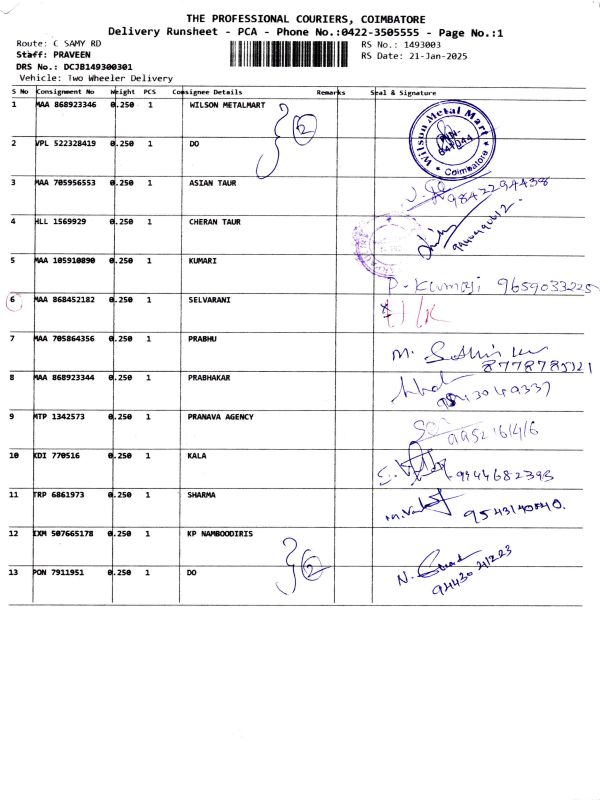 THE PROFESSIONAL COURIERS, COIMBATORE
Delivery Runsheet - PCA - Phone No.:0422-3505555 - Page No.:1
Route: C SAMY RD RS No.: 1493003
Staff: PRAVEEN RS Date: 21-Jan-2025
DRS No.: DCJB149300301
Vehicle: Two Wheeler Delivery
S No Consignment No Weight PCS Consignee Details Remarks Seal & Signature
1 MAA 868923346 0.250 1 WILSON METALMART 2 Wilson Metal Mart Coimbatore
2 VPL 522328419 0.250 1 DO
3 MAA 705956553 0.250 1 ASIAN TAUR 9842294438
4 HLL 1569929 0.250 1 CHERAN TAUR
5 MAA 105910890 0.250 1 KUMARI P. Kumari 9659033225
6 MAA 868452182 0.250 1 SELVARANI
7 MAA 705864356 0.250 1 PRABHU
8 MAA 868923344 0.250 1 PRABHAKAR
9 MTP 1342573 0.250 1 PRANAVA AGENCY
10 KDI 770516 0.250 1 KALA 9944682393
11 TRP 6861973 0.250 1 SHARMA
12 IXM 507665178 0.250 1 KP NAMBOODIRIS 2
13 PON 7911951 0.250 1 DO